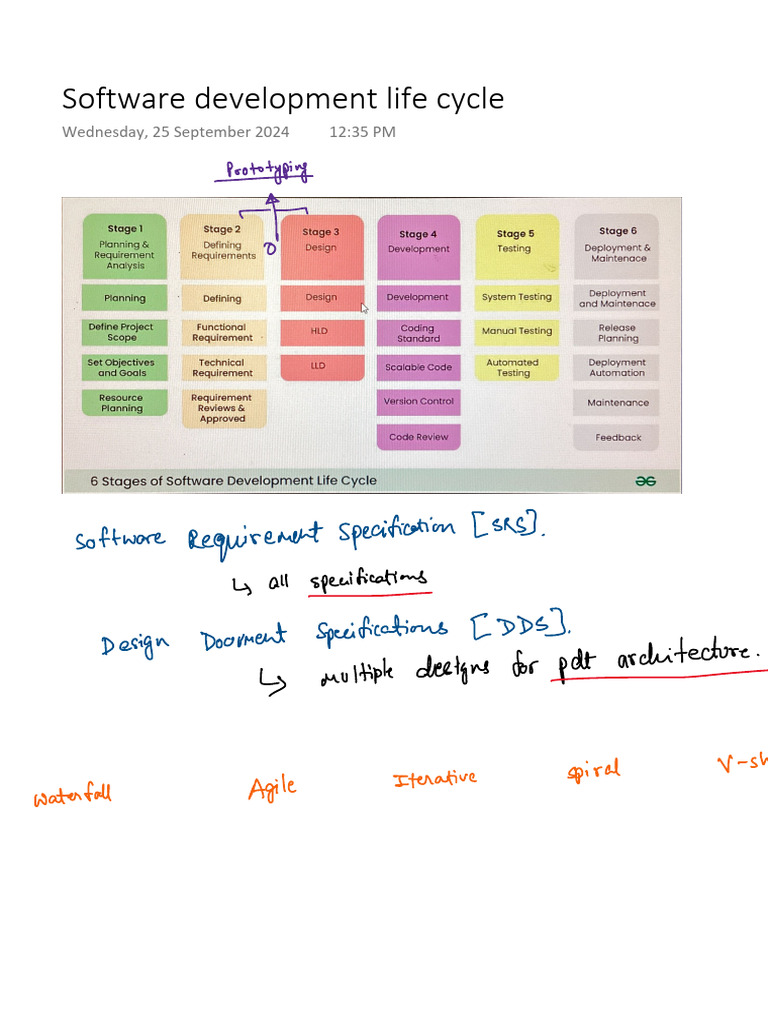 Software development life cycle
Wednesday, 25 September 2024 12:35 PM
Prototyping
Stage 1
Planning &
Requirement
Analysis
Planning
Define Project
Scope
Set Objectives
and Goals
Resource
Planning
Stage 2
Defining
Requirements
Defining
Functional
Requirement
Technical
Requirement
Requirement
Reviews &
Approved
Stage 3
Design
Design
HLD
LLD
Stage 4
Development
Development
Coding
Standard
Scalable Code
Version Control
Code Review
Stage 5
Testing
System Testing
Manual Testing
Automated
Testing
Stage 6
Deployment &
Maintenace
Deployment
and Maintenace
Release
Planning
Deployment
Automation
Maintenance
Feedback
6 Stages of Software Development Life Cycle
Software Requirement Specification [SRS].
↳ all specifications
Design Document Specifications [DDS].
↳ multiple designs for pdt architecture.
Waterfall Agile Iterative spiral V-sh